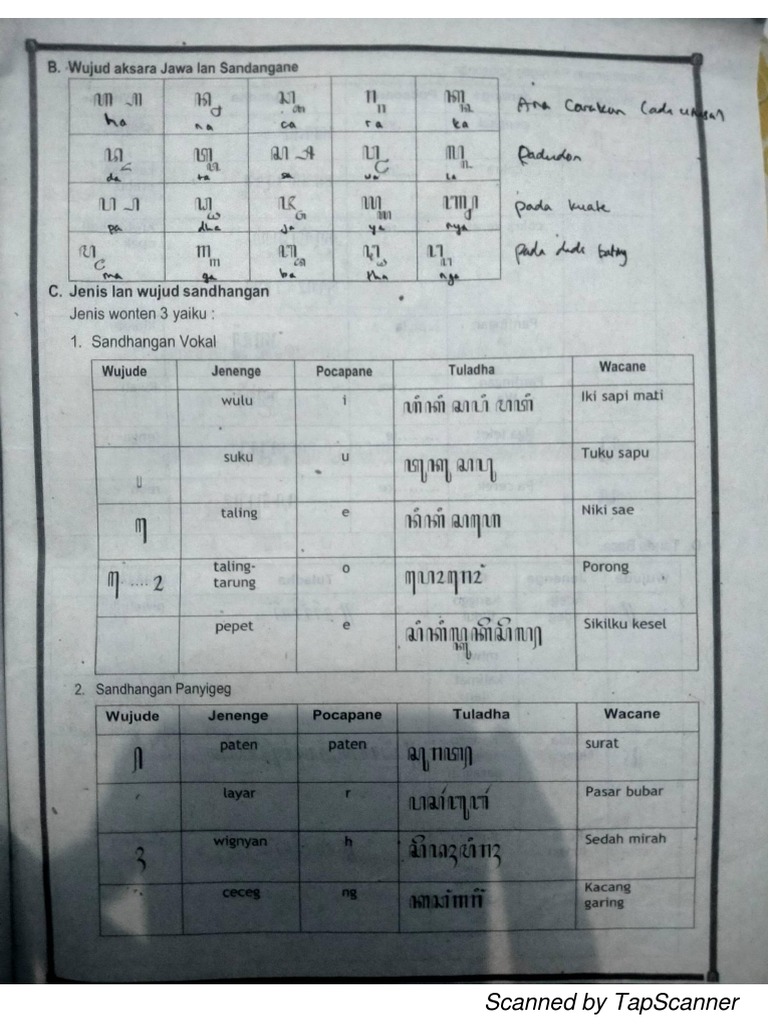 B. Wujud aksara Jawa lan Sandangane
ꦲ ꧀ꦲ ꦤ ꧀ꦤ ꦕ ꧀ꦕ ꦫ ꧀ꦫ ꦏ ꧀ꦏ
ha na ca ra ka
Ana Carakan
ꦢ ꧀ꦢ ꦠ ꧀ꦠ ꦱ ꧀ꦱ ꦮ ꧀ꦮ ꦭ ꧀ꦭ
da ta sa wa la
Padudon
ꦥ ꧀ꦥ ꦝ ꧀ꦝ ꦗ ꧀ꦗ ꦪ ꧀ꦪ ꦚ ꧀ꦚ
pa dha ja ya nya
pada kuate
ꦩ ꧀ꦩ ꦒ ꧀ꦒ ꦧ ꧀ꦧ ꦛ ꧀ꦛ ꦔ ꧀ꦔ
ma ga ba tha nga
pada dadi
C. Jenis lan wujud sandhangan
Jenis wonten 3 yaiku :
1. Sandhangan Vokal
Wujude Jenenge Pocapane Tuladha Wacane
wulu i ꦲꦶꦏꦶ ꦱꦥꦶ ꦩꦠꦶ Iki sapi mati
ꦸ suku u ꦠꦸꦏꦸ ꦱꦥꦸ Tuku sapu
ꦺ taling e ꦤꦶꦏꦶ ꦱꦲꦺ Niki sae
ꦺ .... ꦴ taling-tarung o ꦥꦺꦴꦫꦺꦴꦁ Porong
pepet e ꦱꦶꦏꦶꦭ꧀ꦏꦸꦏꦼꦱꦼꦭ꧀ Sikilku kesel
2. Sandhangan Panyigeg
Wujude Jenenge Pocapane Tuladha Wacane
꧀ paten paten ꦱꦸꦫꦠ꧀ surat
layar r ꦥꦱꦂꦧꦸꦧꦂ Pasar bubar
ꦃ wignyan h ꦱꦼꦢꦃꦩꦶꦫꦃ Sedah mirah
ceceg ng ꦏꦕꦁꦒꦫꦶꦁ Kacang
garing
Scanned by TapScanner